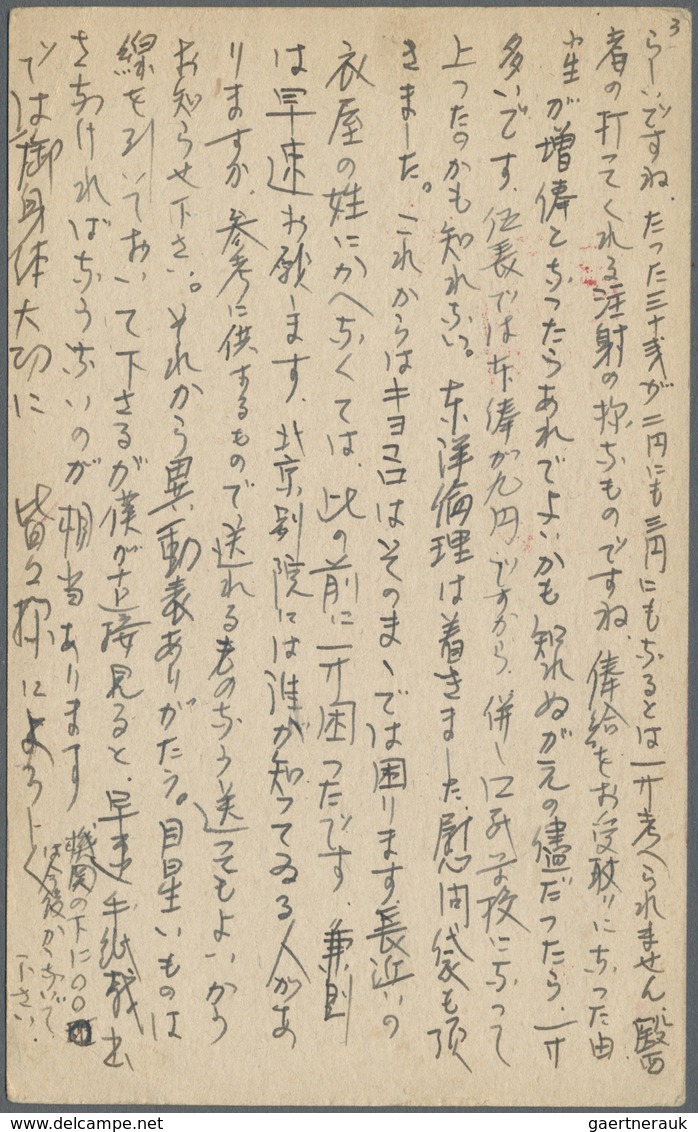 3
らしいですね、たった三十または二円にも三円にもなるとは一寸考へられません、
者の打ってくれる注射の様なものですね、俸給をお受取りになった由
が増俸となったらあれでよいかも知れぬが元の儘だったら、一寸
多いです、伍長では本俸が九円ですから、併し
上ったのかも知れない。東洋倫理は着きました、慰問袋も頂
きました。これからはキヨマロはそのまゝでは困ります、長近いの
衣屋の姓にかへなくては、此の前に一寸困ったです、兼則
は早速お願します、北京別院には誰か知ってゐる人があ
りますか、参考に供するもので送れるものなら送ってもよいから
お知らせ下さい。それから異動表ありがたう。目星いものは
線を引いておいて下さるが僕が直接見ると、早速手紙が出
さなければならないのが相当あります
では御身体大切に 皆々様によろしく
機関の下に〇〇
は今後かゝないで
下さい、
gaertnerauk